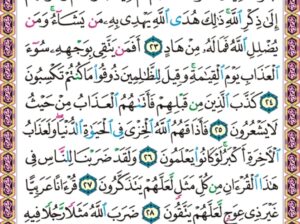 إِلَىٰ ذِكْرِ ٱللَّهِ ذَٰلِكَ هُدَى ٱللَّهِ يَهْدِى بِهِۦ مَن يَشَآءُ وَمَن
يُضْلِلِ ٱللَّهُ فَمَا لَهُۥ مِنْ هَادٍ ٢٣ أَفَمَن يَتَّقِى بِوَجْهِهِۦ سُوٓءَ
ٱلْعَذَابِ يَوْمَ ٱلْقِيَٰمَةِ وَقِيلَ لِلظَّٰلِمِينَ ذُوقُوا۟ مَا كُنتُمْ تَكْسِبُونَ
٢٤ كَذَّبَ ٱلَّذِينَ مِن قَبْلِهِمْ فَأَتَىٰهُمُ ٱلْعَذَابُ مِنْ حَيْثُ
لَا يَشْعُرُونَ ٢٥ فَأَذَاقَهُمُ ٱللَّهُ ٱلْخِزْىَ فِى ٱلْحَيَوٰةِ ٱلدُّنْيَا وَلَعَذَابُ
ٱلْءَاخِرَةِ أَكْبَرُ لَوْ كَانُوا۟ يَعْلَمُونَ ٢٦ وَلَقَدْ ضَرَبْنَا لِلنَّاسِ فِى
هَٰذَا ٱلْقُرْءَانِ مِن كُلِّ مَثَلٍ لَّعَلَّهُمْ يَتَذَكَّرُونَ ٢٧ قُرْءَانًا عَرَبِيًّا
غَيْرَ ذِى عِوَجٍ لَّعَلَّهُمْ يَتَّقُونَ ٢٨ ضَرَبَ ٱللَّهُ مَثَلًا رَّجُلًا فِيهِ